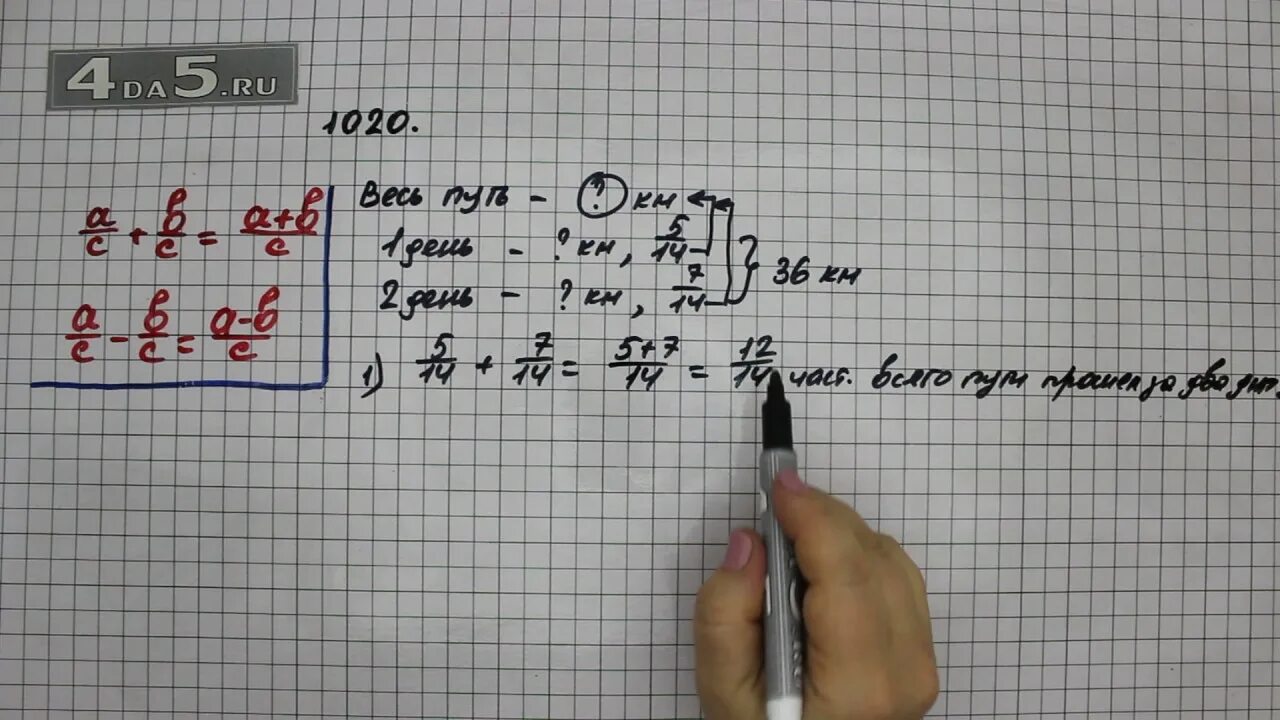 4DA5.RU
1020.
a/c + b/c = a+b/c
a/c - b/c = a-b/c
Весь путь - ? км
1 день - ? км, 5/14
2 день - ? км, 7/14
} 36 км
1) 5/14 + 7/14 = 5+7/14 = 12/14 част. всего пути прошел за два дня.